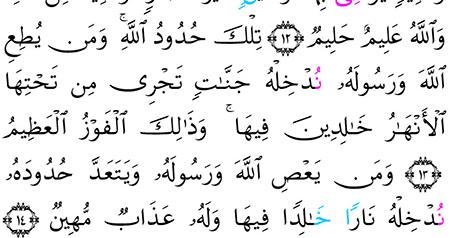 وَٱللَّهُ عَلِيمٌ حَلِيمٌ ﴿١٢﴾ تِلْكَ حُدُودُ ٱللَّهِۚ وَمَن يُطِعِ
ٱللَّهَ وَرَسُولَهُۥ نُدْخِلْهُ جَنَّٰتٍ تَجْرِى مِن تَحْتِهَا
ٱلْأَنْهَٰرُ خَٰلِدِينَ فِيهَاۚ وَذَٰلِكَ ٱلْفَوْزُ ٱلْعَظِيمُ
﴿١٣﴾ وَمَن يَعْصِ ٱللَّهَ وَرَسُولَهُۥ وَيَتَعَدَّ حُدُودَهُۥ
نُدْخِلْهُ نَارًا خَٰلِدًا فِيهَا وَلَهُۥ عَذَابٌ مُّهِينٌ ﴿١٤﴾